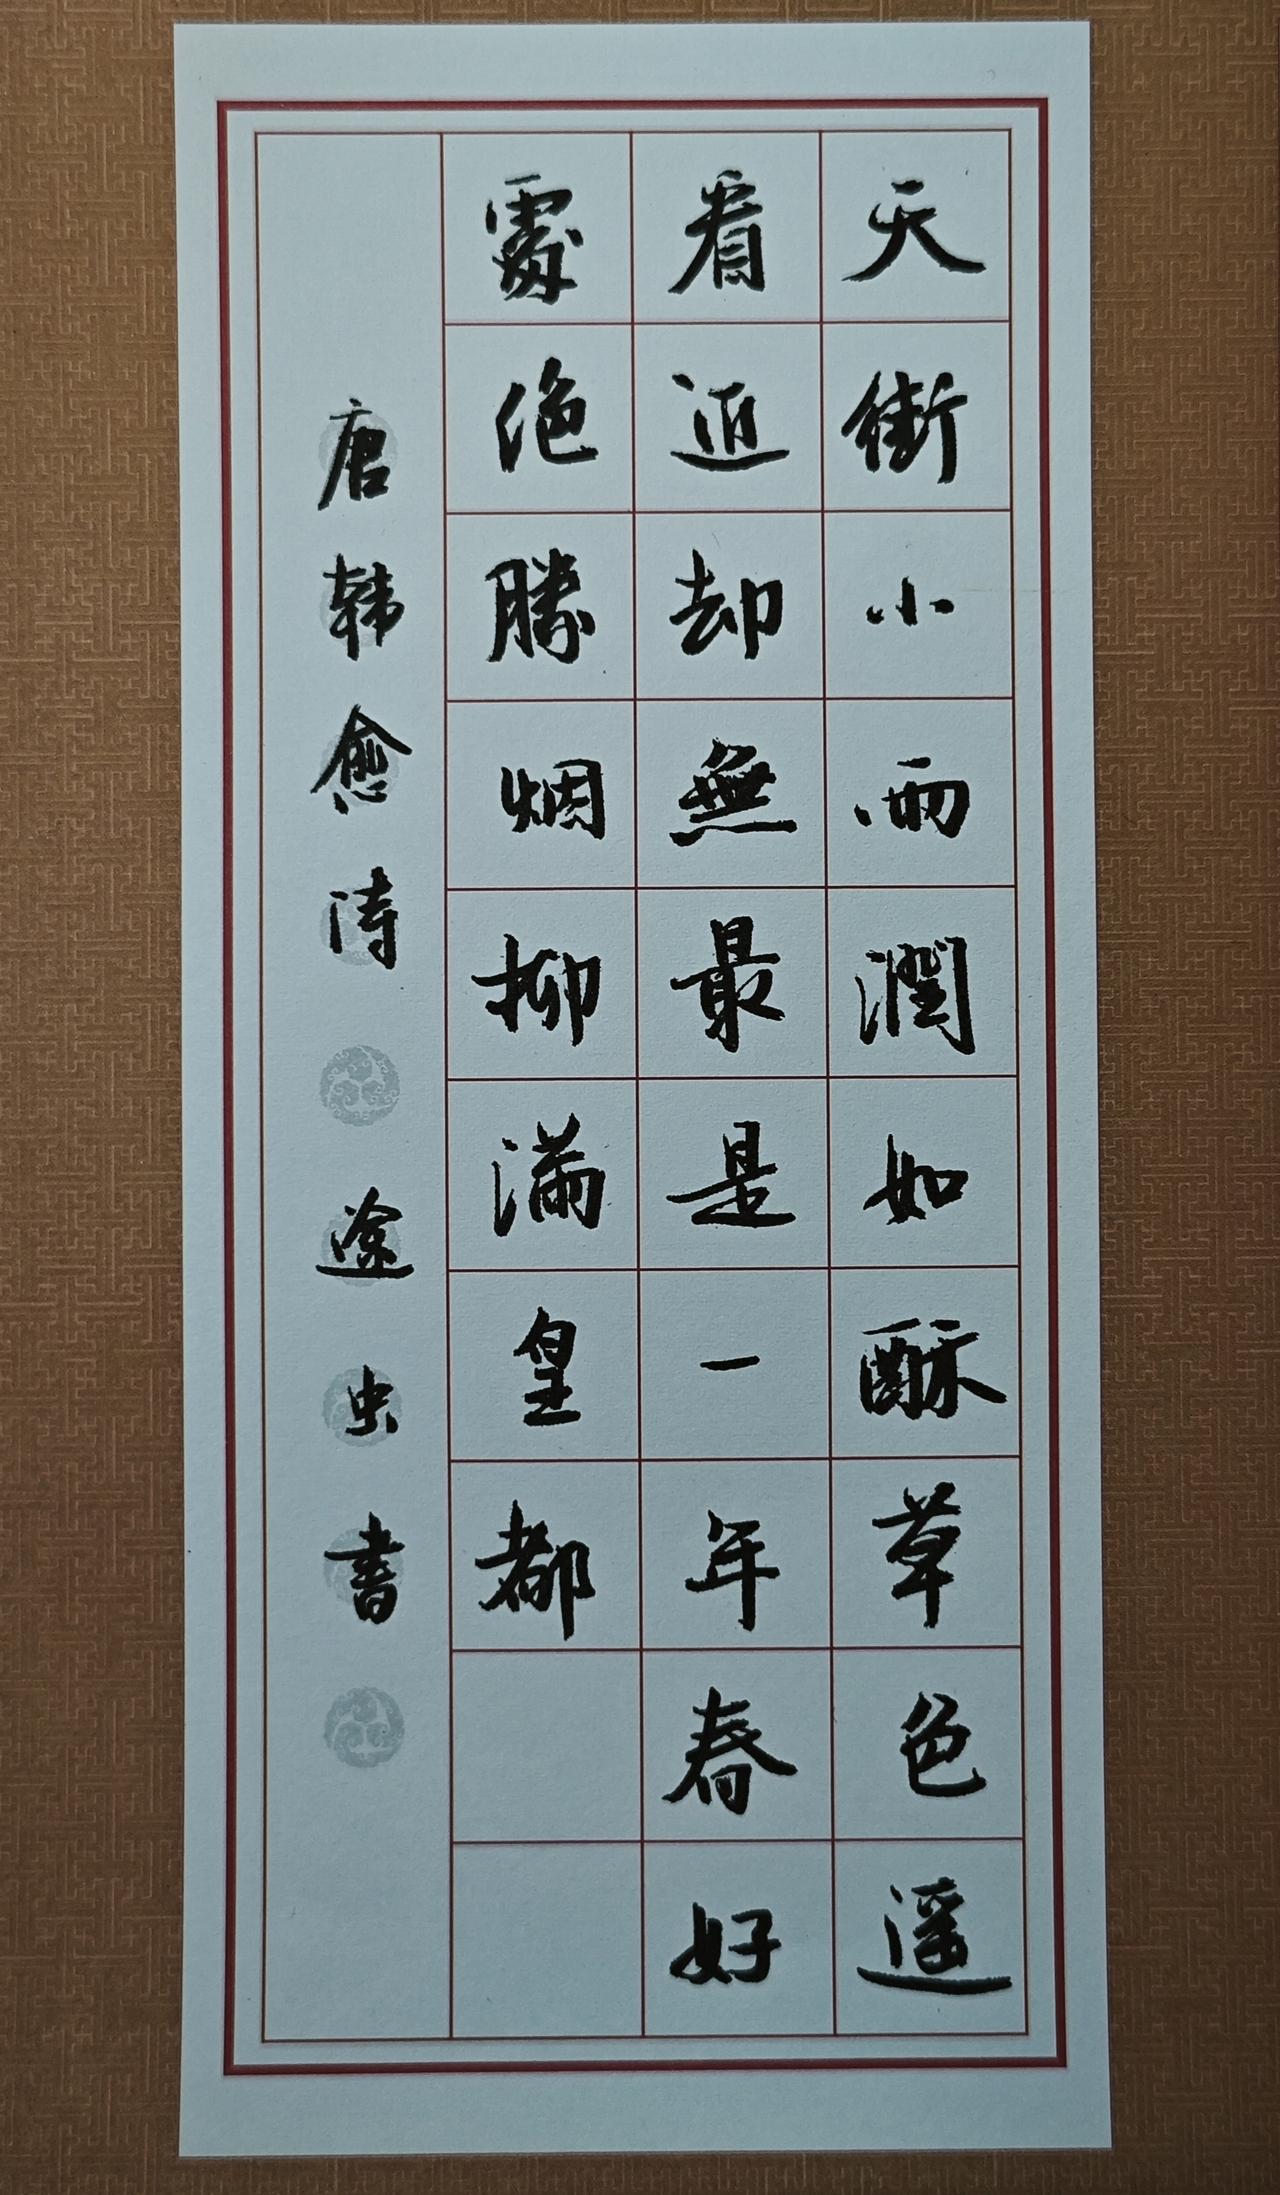 天街小雨潤如酥草色遥
看近却無最是一年春好
處绝勝烟柳满皇都
唐韩愈诗 途虫書